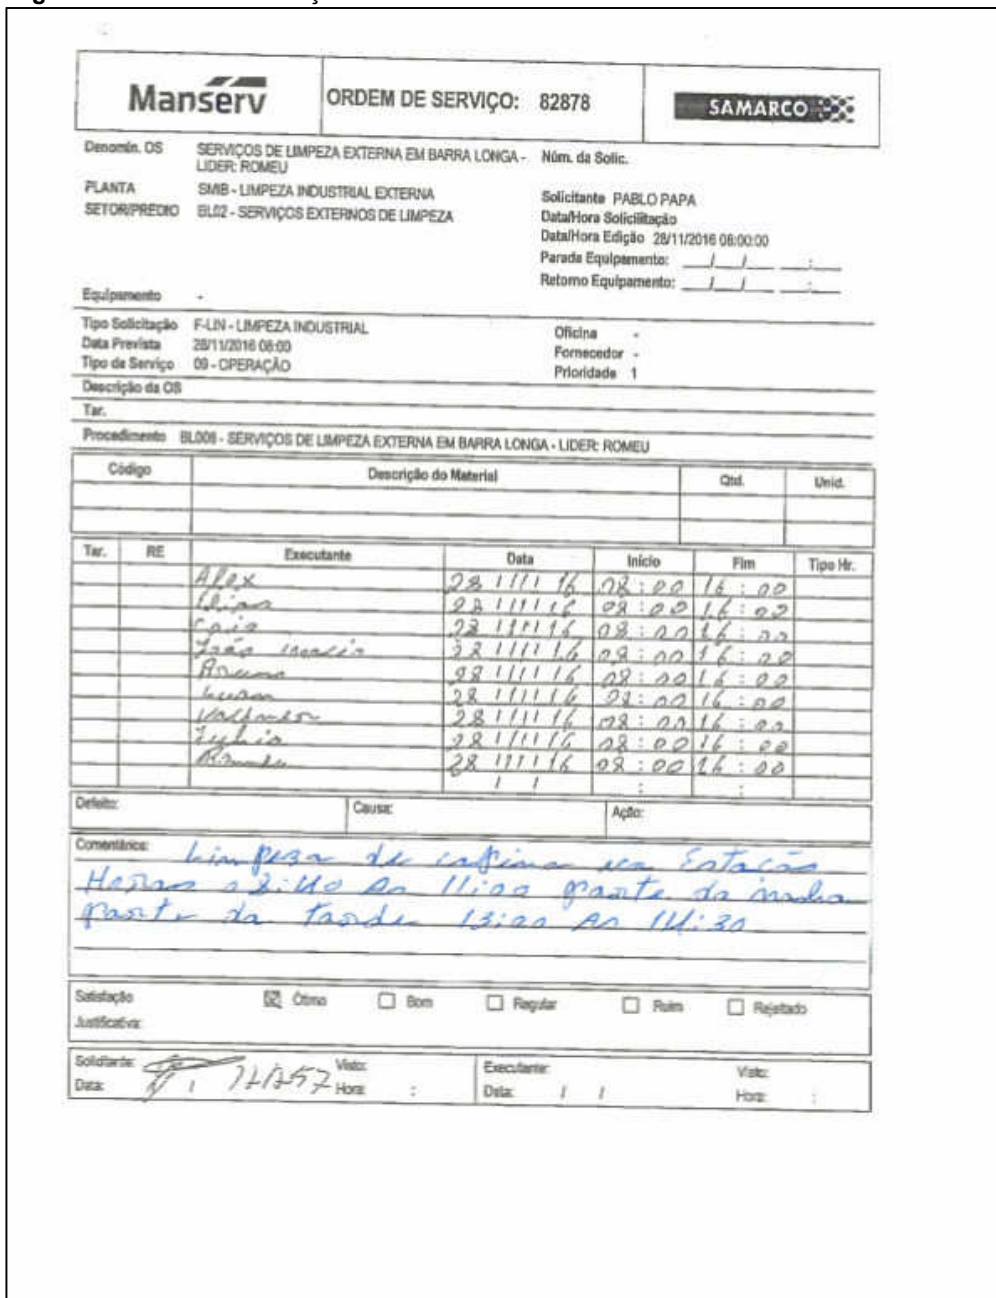 Manserv
ORDEM DE SERVIÇO: 82878
SAMARCO
Denomin. OS SERVIÇOS DE LIMPEZA EXTERNA EM BARRA LONGA - LIDER: ROMEU
Núm. da Solic.
PLANTA SMIB - LIMPEZA INDUSTRIAL EXTERNA
SETOR/PREDIO BL02 - SERVIÇOS EXTERNOS DE LIMPEZA
Solicitante PABLO PAPA
Data/Hora Solicilitação
Data/Hora Edição 28/11/2016 08:00:00
Parada Equipamento: __/__/__ __:__
Retorno Equipamento: __/__/__ __:__
Equipamento -
Tipo Solicitação F-LIN - LIMPEZA INDUSTRIAL
Data Prevista 28/11/2016 08:00
Tipo de Serviço 09 - OPERAÇÃO
Oficina -
Fornecedor -
Prioridade 1
Descrição da OS
Tar.
Procedimento BL008 - SERVIÇOS DE LIMPEZA EXTERNA EM BARRA LONGA - LIDER: ROMEU
Código Descrição do Material Qtd. Unid.
Tar. RE Executante Data Início Fim Tipo Hr.
Alex 28/11/16 08:00 16:00
28/11/16 08:00 16:00
28/11/16 08:00 16:00
João 28/11/16 08:00 16:00
28/11/16 08:00 16:00
28/11/16 08:00 16:00
28/11/16 08:00 16:00
28/11/16 08:00 16:00
28/11/16 08:00 16:00
/ / : :
Defeito: Causa: Ação:
Comentários: Limpeza de capina na Estação
Horas às 11:00 parte da
parte da tarde 13:00 as 14:30
Satisfação Ótimo Bom Regular Ruim Rejeitado
Justificativa:
Solicitante: Visto: Executante: Visto:
Data: Hora: : Data: / / Hora: :